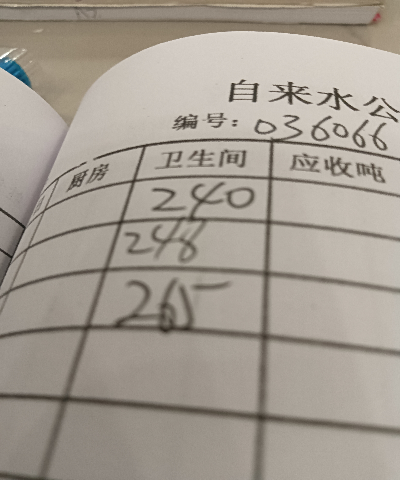 自来水公
编号：036066
厨房 卫生间 应收吨
240
248
265